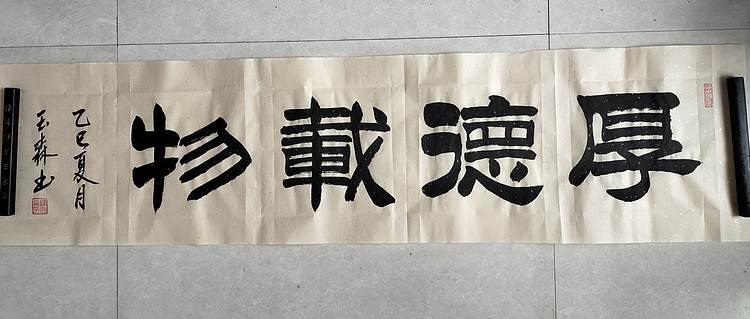 厚德載物
乙巳夏月
玉森书